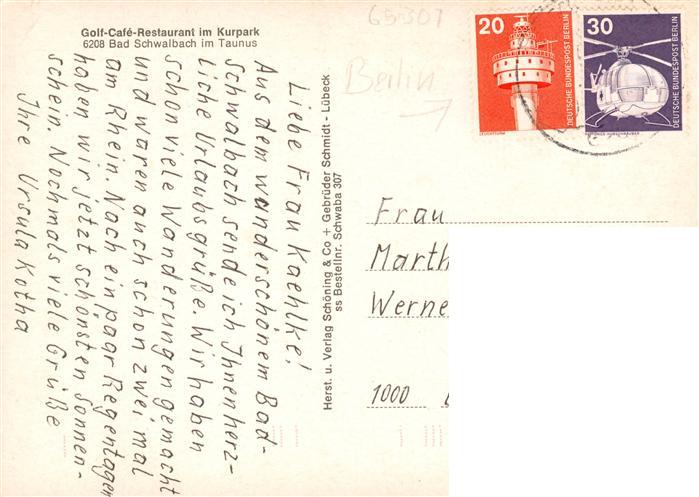 Golf-Café-Restaurant im Kurpark
6208 Bad Schwalbach im Taunus
Liebe Frau Kaehlke!
Aus dem wunderschönem Bad-
Schwalbach sende ich Ihnen herz-
liche Urlaubsgrüße. Wir haben
schon viele Wanderungen gemacht
und waren auch schon zwei mal
am Rhein. Nach ein paar Regentagen
haben wir jetzt schönsten Sonnen-
schein. Nochmals viele Grüße
Ihre Ursula Kotha
Herst. u. Verlag Schöning & Co + Gebrüder Schmidt - Lübeck
ss Bestellnr. Schwaba 307
65-307
Berlin
20
DEUTSCHE BUNDESPOST BERLIN
LEUCHTTURM
30
DEUTSCHE BUNDESPOST BERLIN
Frau
Marth
Werne
1000